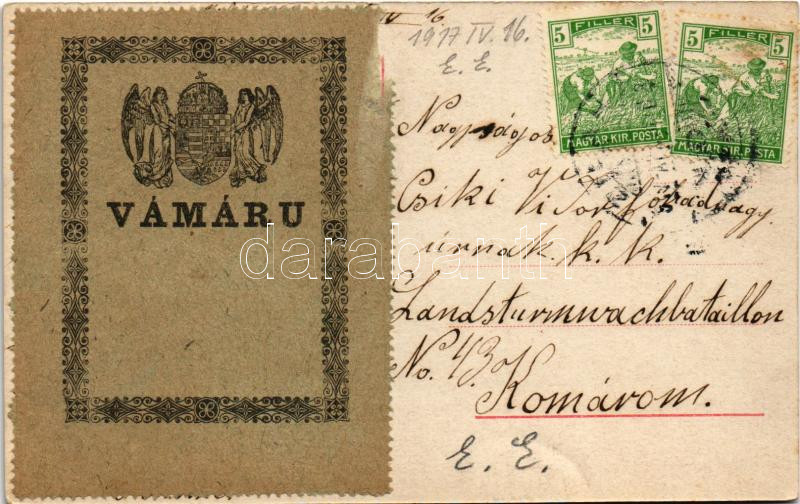 VÁMÁRU
IV 16.
1917 IV. 16.
E. E.
5 FILLÉR 5
MAGYAR KIR. POSTA
5 FILLÉR 5
MAGYAR KIR. POSTA
Nagyságos
Csiki Viktor főhadnagy
úrnak. k. k.
Landsturmwachbataillon
No. 43.
Komárom.
E. E.
darabanth